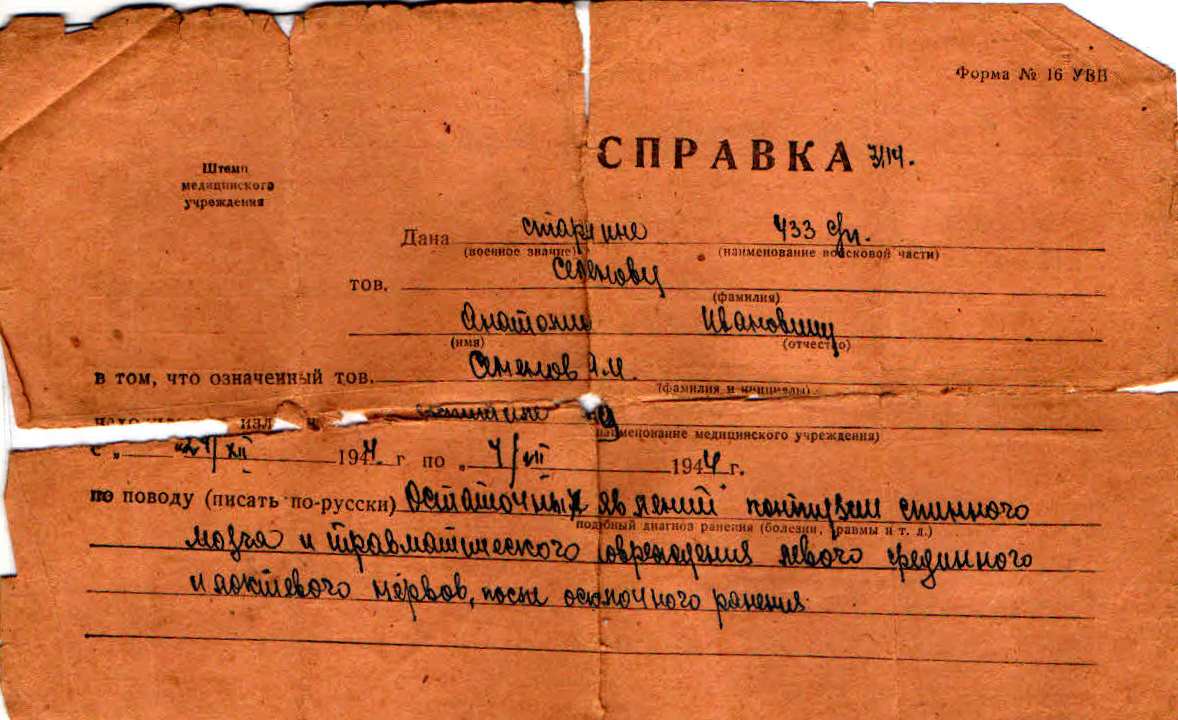 Форма № 16 УВП
СПРАВКА 7/14.
Штамп
медицинского
учреждения
Дана старшине 433 сп.
(военное звание) (наименование войсковой части)
тов. Семенову
(фамилия)
Анатолию Ивановичу
(имя) (отчество)
в том, что означенный тов. Семенов А.И.
(фамилия и инициалы)
на
наименование медицинского учреждения)
с „ 194 г по „ 7/VII 1944 г.
по поводу (писать по-русски) Остаточных явлений контузии спинного
подобный диагноз ранения (болезни, травмы и т. д.)
мозга и травматического повреждения левого срединного
и локтевого нервов, после осколочного ранения